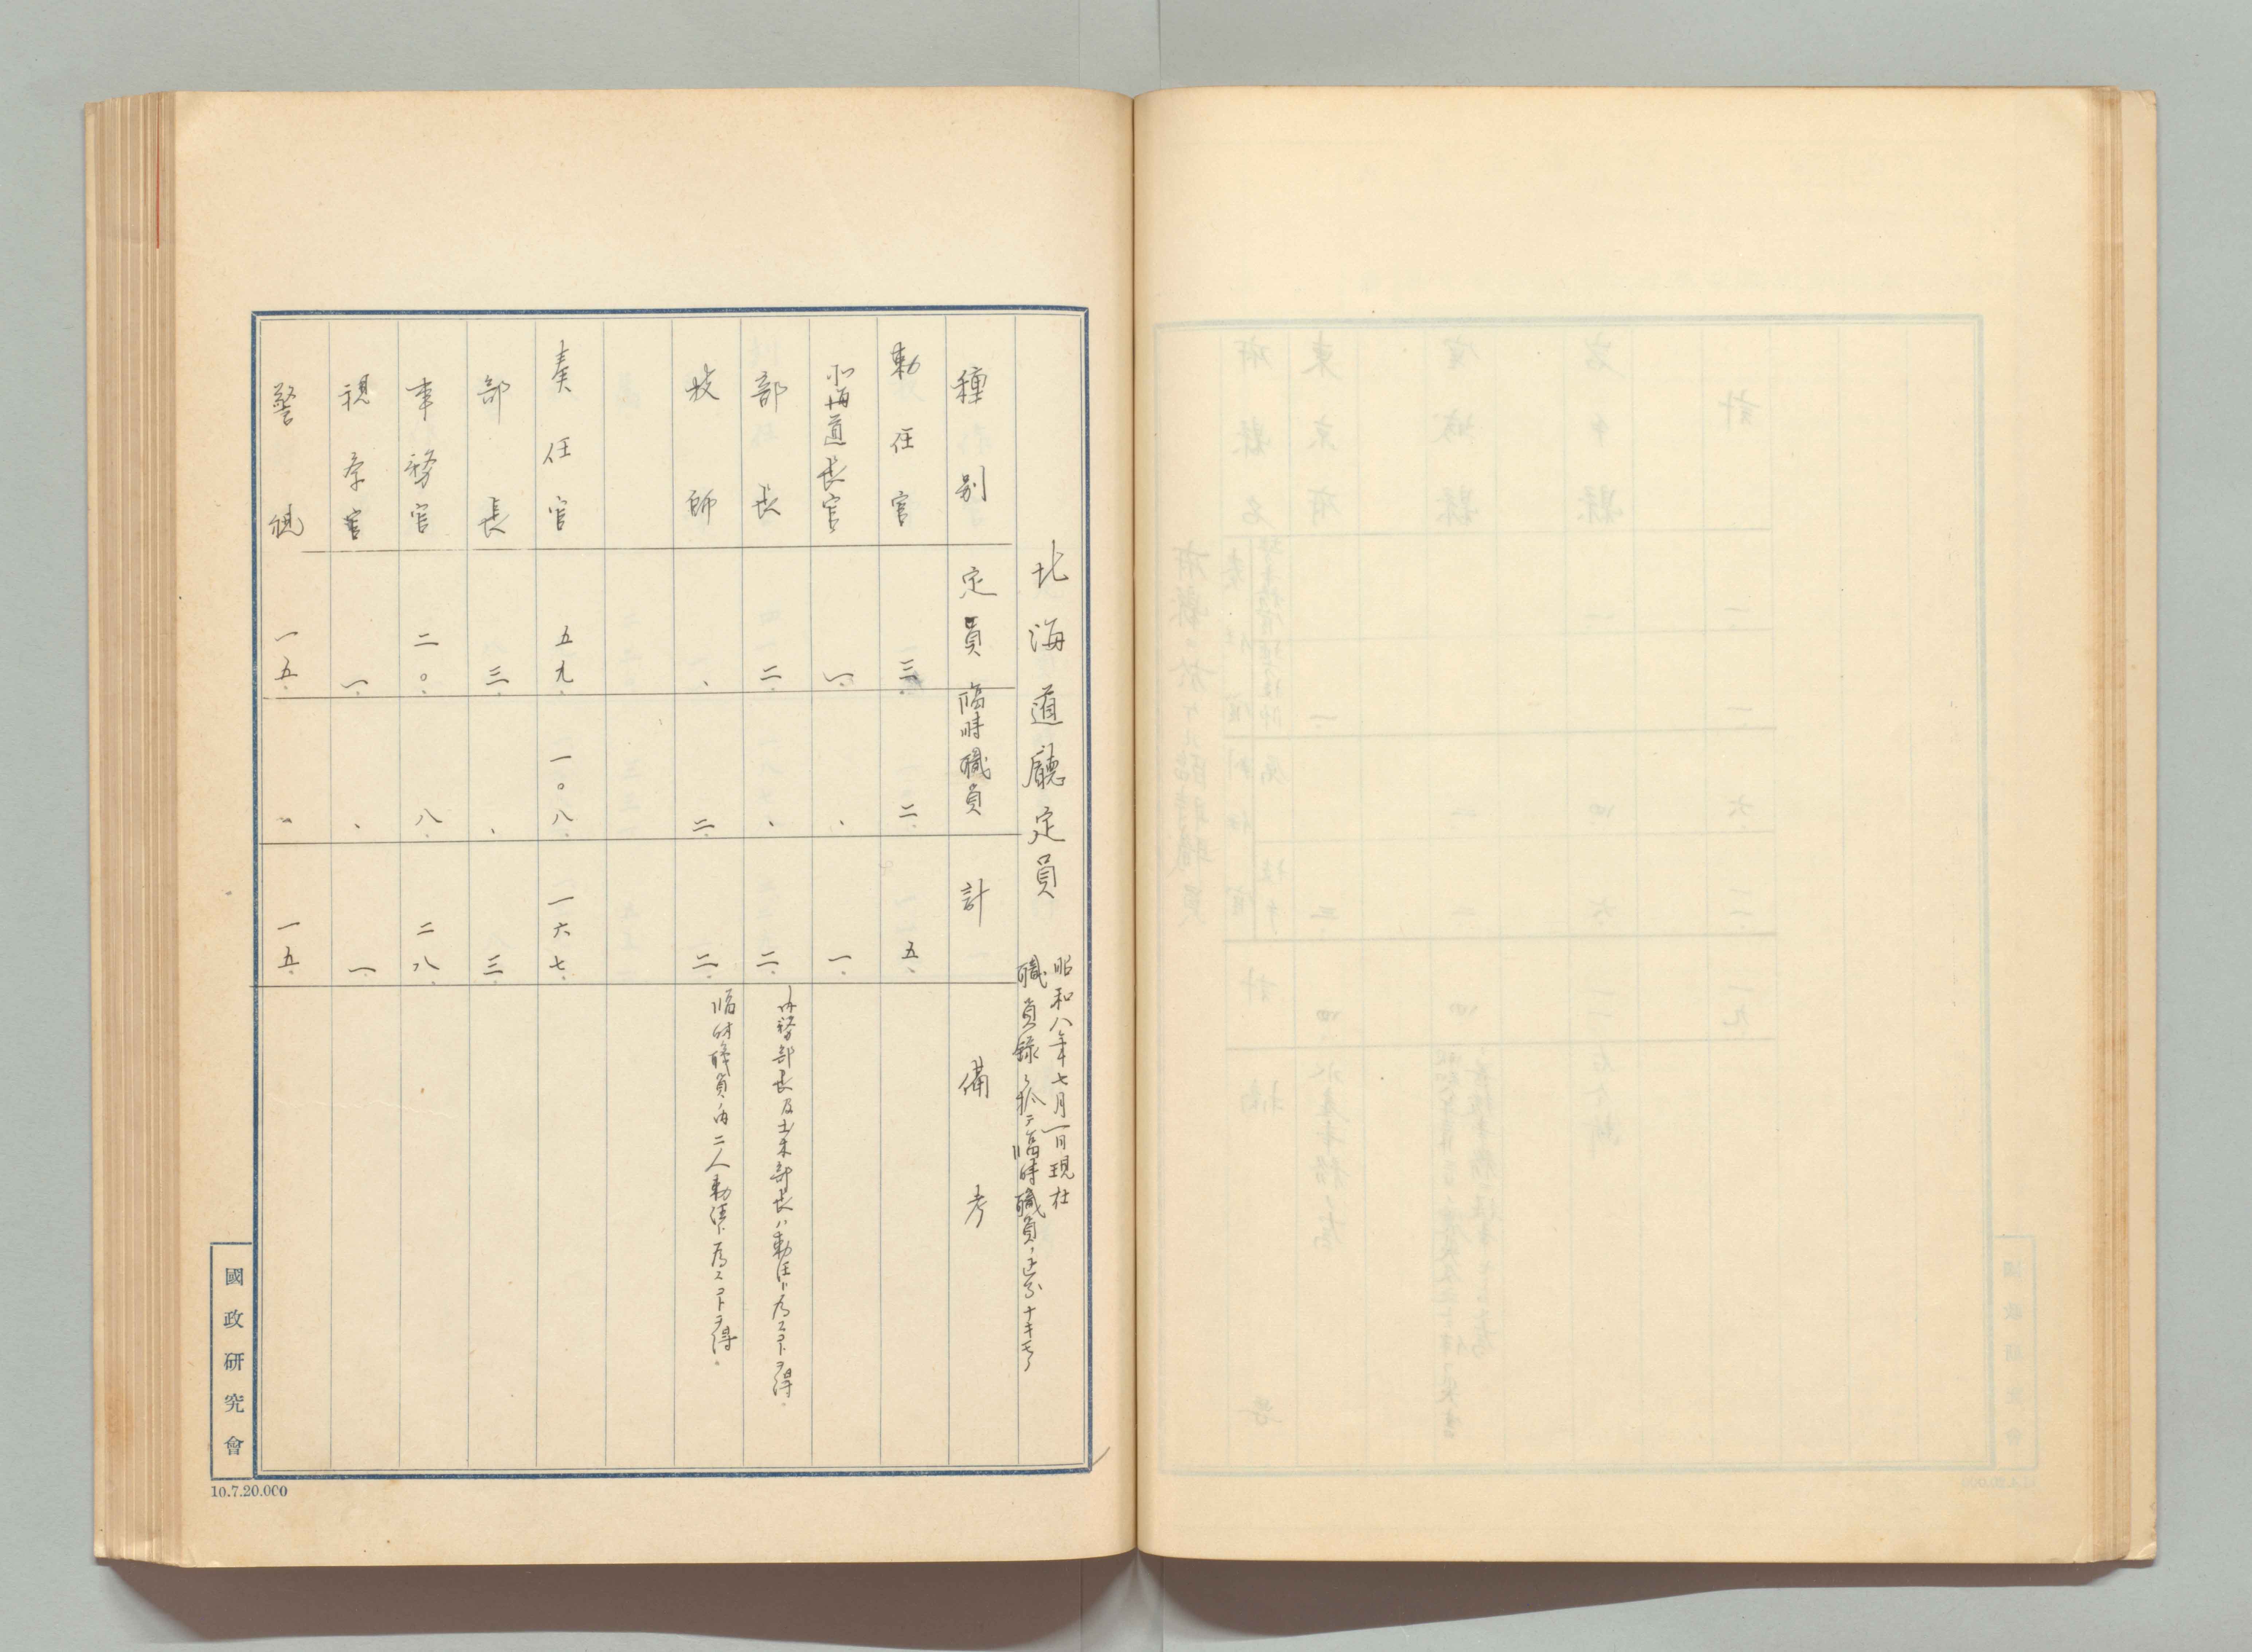 北海道廳定員
昭和八年七月一日現在
職員録ニ拠ニ臨時職員
種別 定員 臨時職員 計 備考
勅任官 三 二 五
北海道長官 一 、 一
部長 二 、 二 内務部長及土木部長ハ勅任ト為スコトヲ得
技師 、 二 二 臨時職員ノ内二人勅任ト為スコトヲ得
奏任官 五九 一〇八 一六七
部長 三 、 三
事務官 二〇 八 二八
視学官 一 、 一
警視 一五 、 一五
國政研究會
10.7.20.000